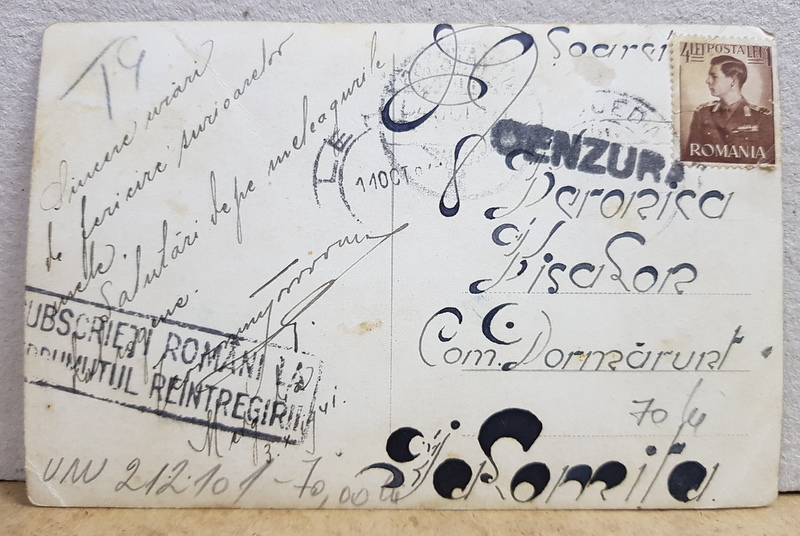 T9
Sincere urări
de fericire surioarelor
mele.
Salutări depe meleagurile
SUBSCRIEȚI ROMÂNI LA
ÎMPRUMUTUL REÎNTREGIRII
UNV 212.101-70,00 lei
11 OCT
CENZURAT
4 LEI POSTA LEI 4
ROMANIA
Veronica
Nisator
Com. Dormărunt
70 lei
Ialomița